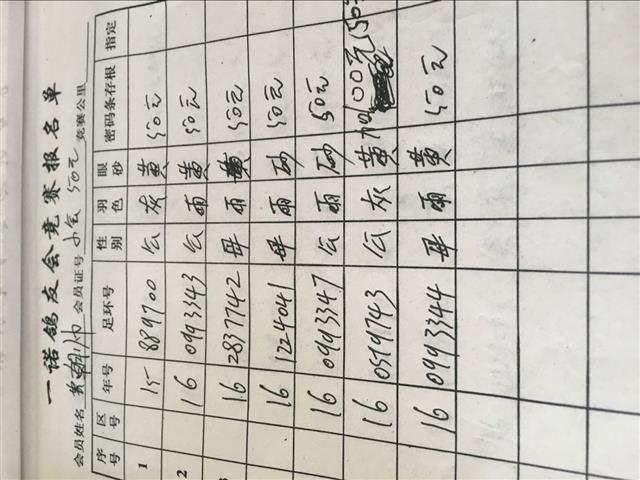 一诺鸽友会竞赛报名单
会员姓名 会员证号 50元 竞赛公里
序号 区号 年号 足环号 性别 羽色 眼砂 密码条存根 指定
1 15 889700 公 灰 黄 50元
2 16 0993343 公 雨 黄 50元
16 2837742 母 雨 黄 50元
16 1224041 母 雨 砂 50元
16 0993347 公 雨 砂 50元
16 0519743 公 灰 黄 100元 50元
16 0993344 母 雨 黄 50元